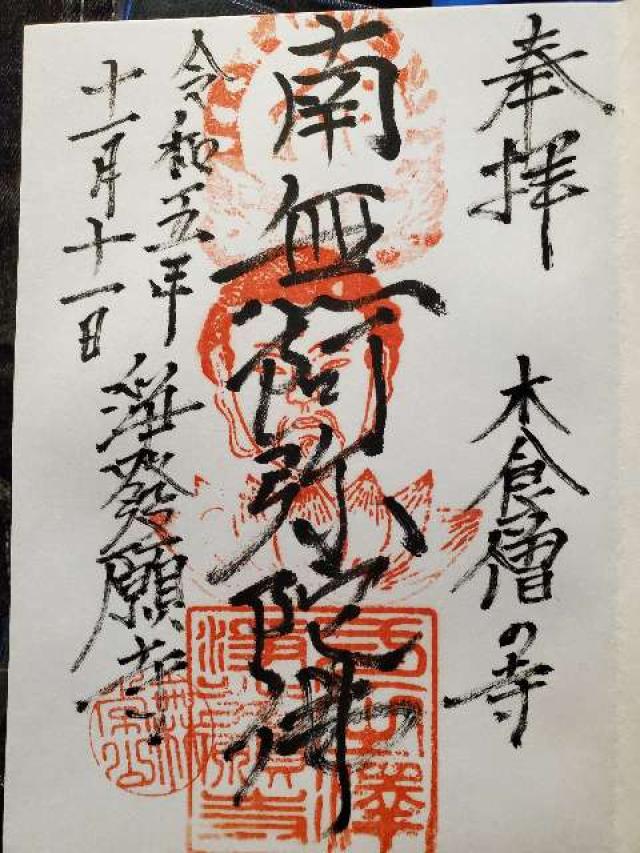 奉拝
木食僧の寺
南無阿弥陀佛
令和五年
十一月十一日
發願寺